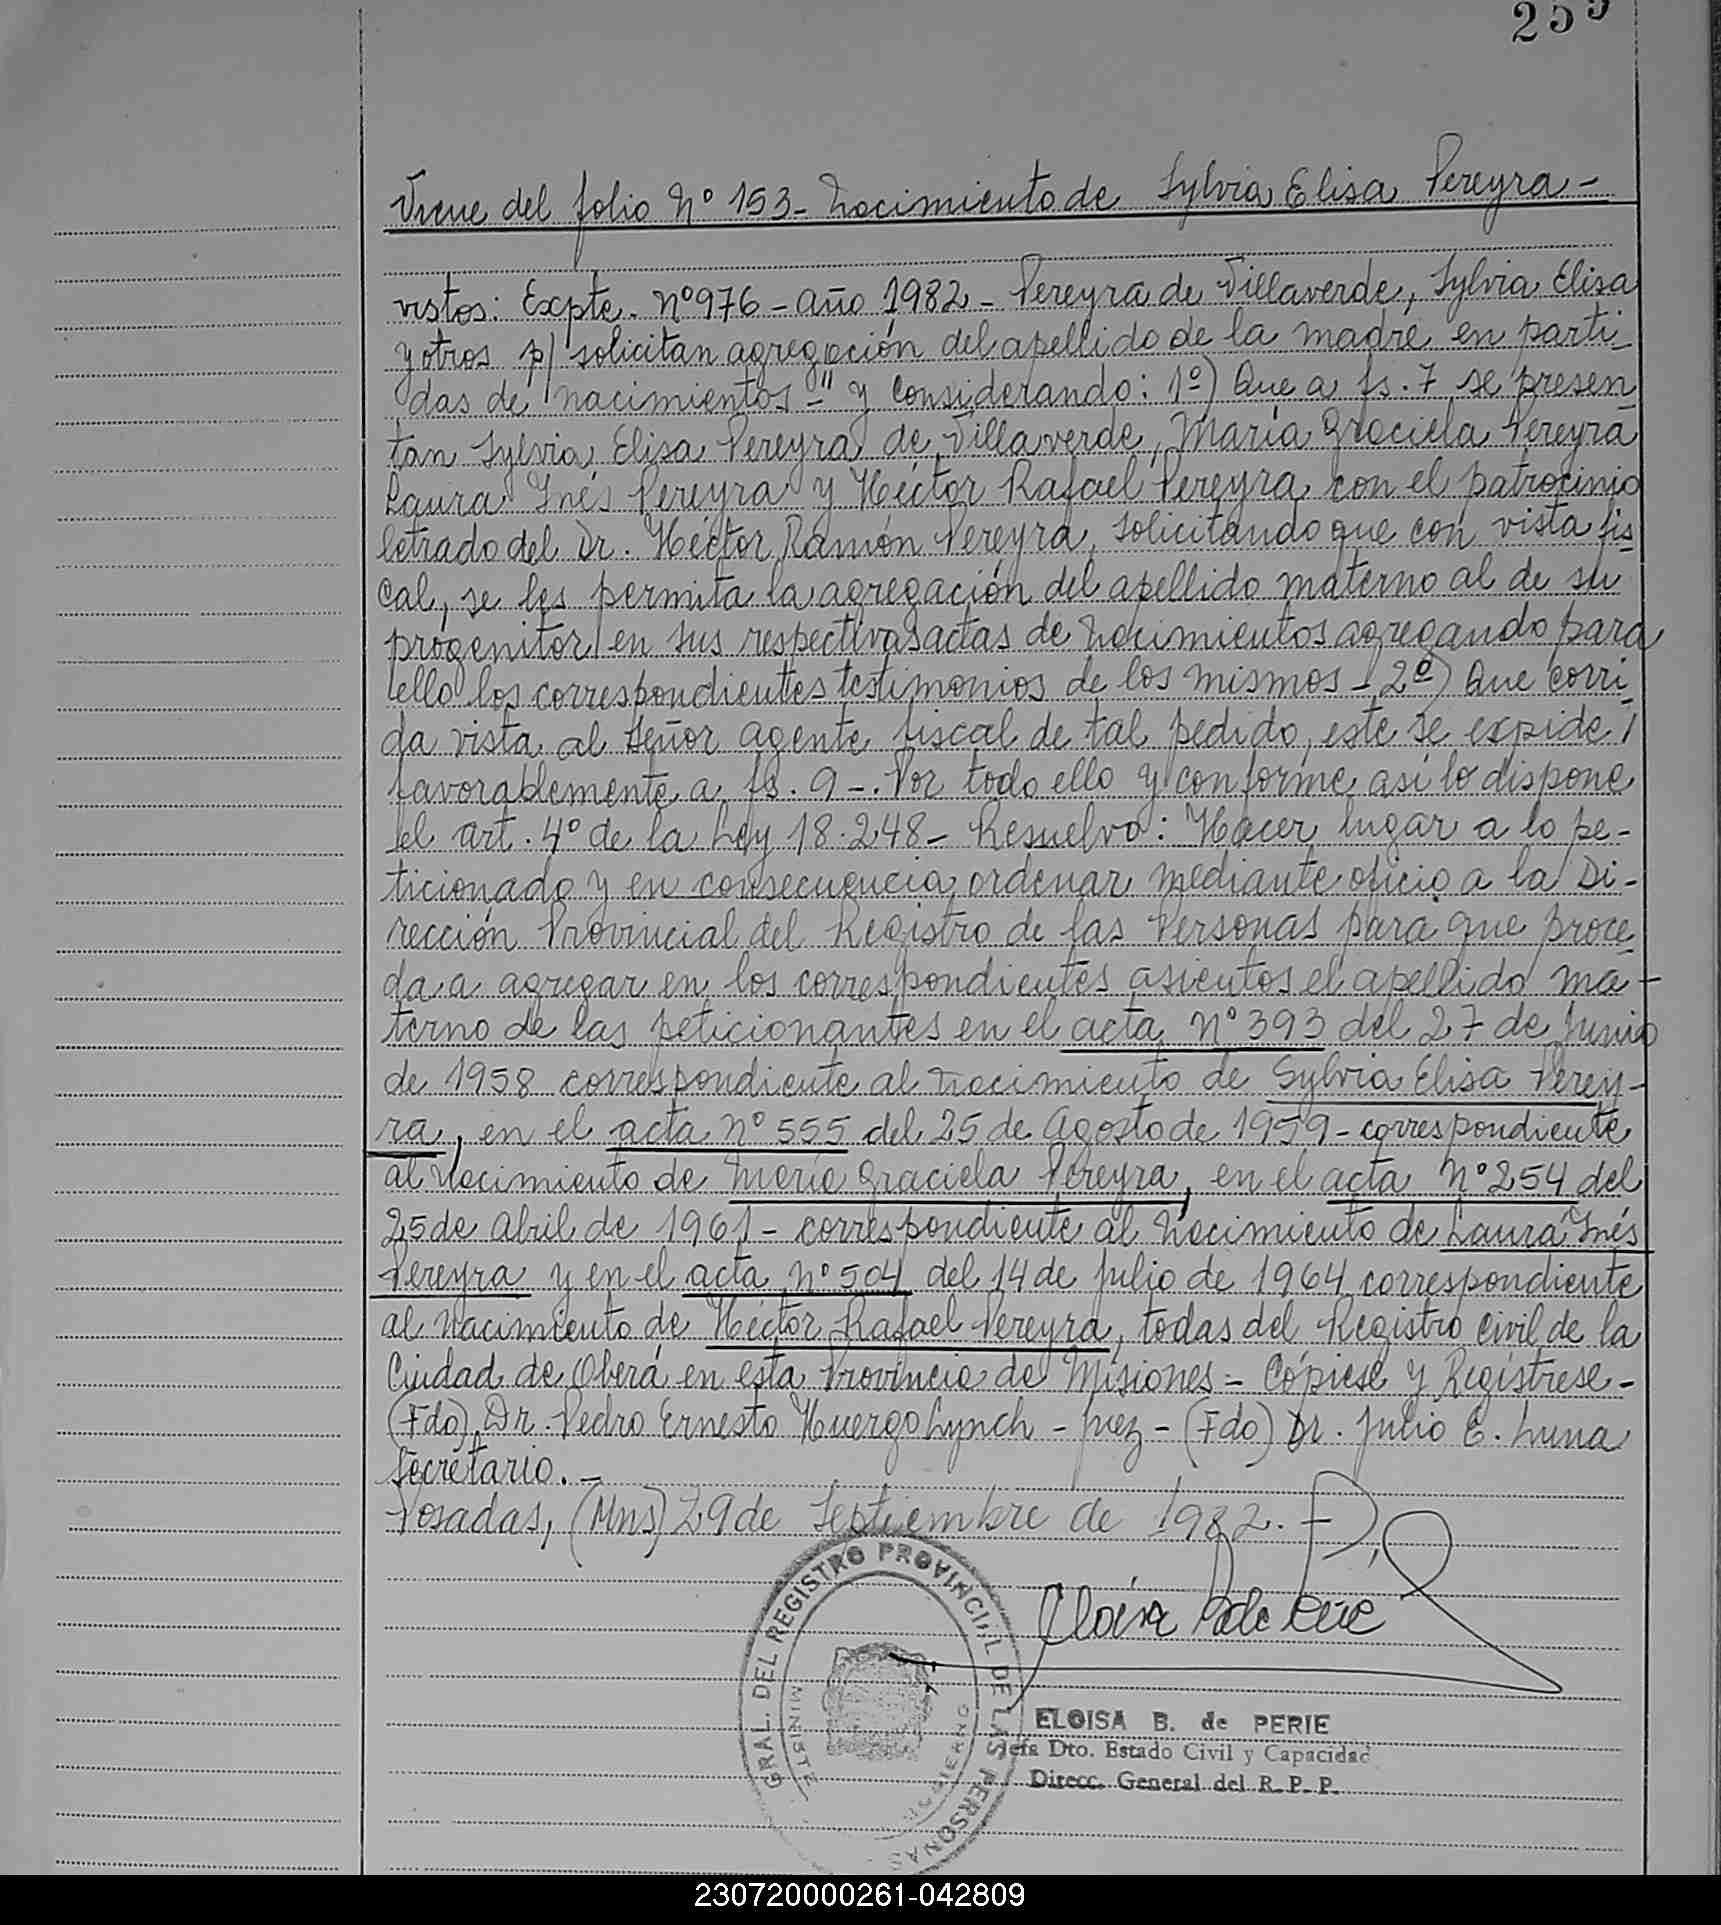 255
Viene del folio Nº 153- Nacimiento de Sylvia Elisa Pereyra-
vistos: Expte. Nº 976 - año 1982 - Pereyra de Villaverde, Sylvia Elisa
y otros p/ solicitan agregación del apellido de la madre en parti-
das de nacimientos-" y Considerando: 1º) Que a fs. 7 se presen-
tan Sylvia Elisa Pereyra de Villaverde, María Graciela Pereyra
Laura Inés Pereyra y Héctor Rafael Pereyra con el patrocinio
letrado del Dr. Héctor Ramón Pereyra, solicitando que con vista fis-
cal, se les permita la agregación del apellido materno al de su
progenitor en sus respectivas actas de Nacimientos agregando para
ello los correspondientes testimonios de los mismos - 2º) Que corri-
da vista al Señor agente fiscal de tal pedido, este se expide /
favorablemente a fs. 9 -. Por todo ello y conforme así lo dispone
el art. 4º de la Ley 18.248 - Resuelvo: Hacer lugar a lo pe-
ticionado y en consecuencia ordenar mediante oficio a la Di-
rección Provincial del Registro de las Personas para que proce-
da a agregar en los correspondientes asientos el apellido ma-
terno de las peticionantes en el acta Nº 393 del 27 de Junio
de 1958 correspondiente al Nacimiento de Sylvia Elisa Perey-
ra, en el acta Nº 555 del 25 de Agosto de 1959 - correspondiente
al Nacimiento de María Graciela Pereyra, en el acta Nº 254 del
25 de Abril de 1961 - correspondiente al Nacimiento de Laura Inés
Pereyra y en el acta Nº 504 del 14 de Julio de 1964 correspondiente
al Nacimiento de Héctor Rafael Pereyra, todas del Registro Civil de la
Ciudad de Oberá en esta Provincia de Misiones - Cópiese y Regístrese -
(Fdo) Dr. Pedro Ernesto Huergo Lynch - Juez - (Fdo) Dr. Julio E. Luna
Secretario. -
Posadas, (Mns) 29 de Septiembre de 1982.
GRAL. DEL REGISTRO PROVINCIAL DE LAS PERSONAS
ELOISA B. de PERIE
Jefa Dto. Estado Civil y Capacidad
Direcc. General del R. P. P.
230720000261-042809